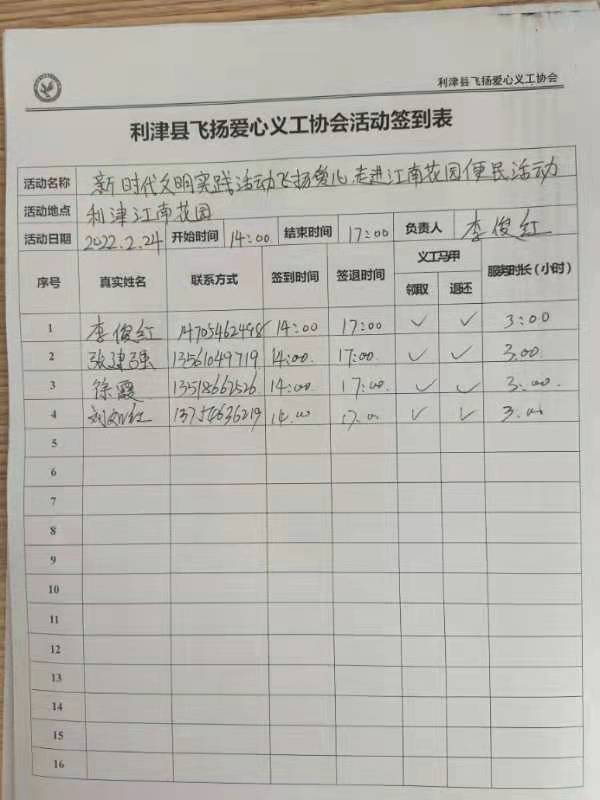 利津县飞扬爱心义工协会
利津县飞扬爱心义工协会活动签到表
活动名称 新时代文明实践活动飞扬爱心走进江南花园便民活动
活动地点 利津江南花园
活动日期 2022.2.24 开始时间 14:00 结束时间 17:00 负责人 李俊红
序号 真实姓名 联系方式 签到时间 签退时间 义工马甲 服务时长(小时)
领取 退还
1 李俊红 14705462498 14:00 17:00 ✓ ✓ 3:00
2 张建强 13561049719 14:00. 17:00. ✓ ✓ 3.00
3 徐霞 13518662526 14:00 17:00 ✓ ✓ 3:00.
4 13754636219 14.00 17.00 ✓ ✓ 3.00
5
6
7
8
9
10
11
12
13
14
15
16